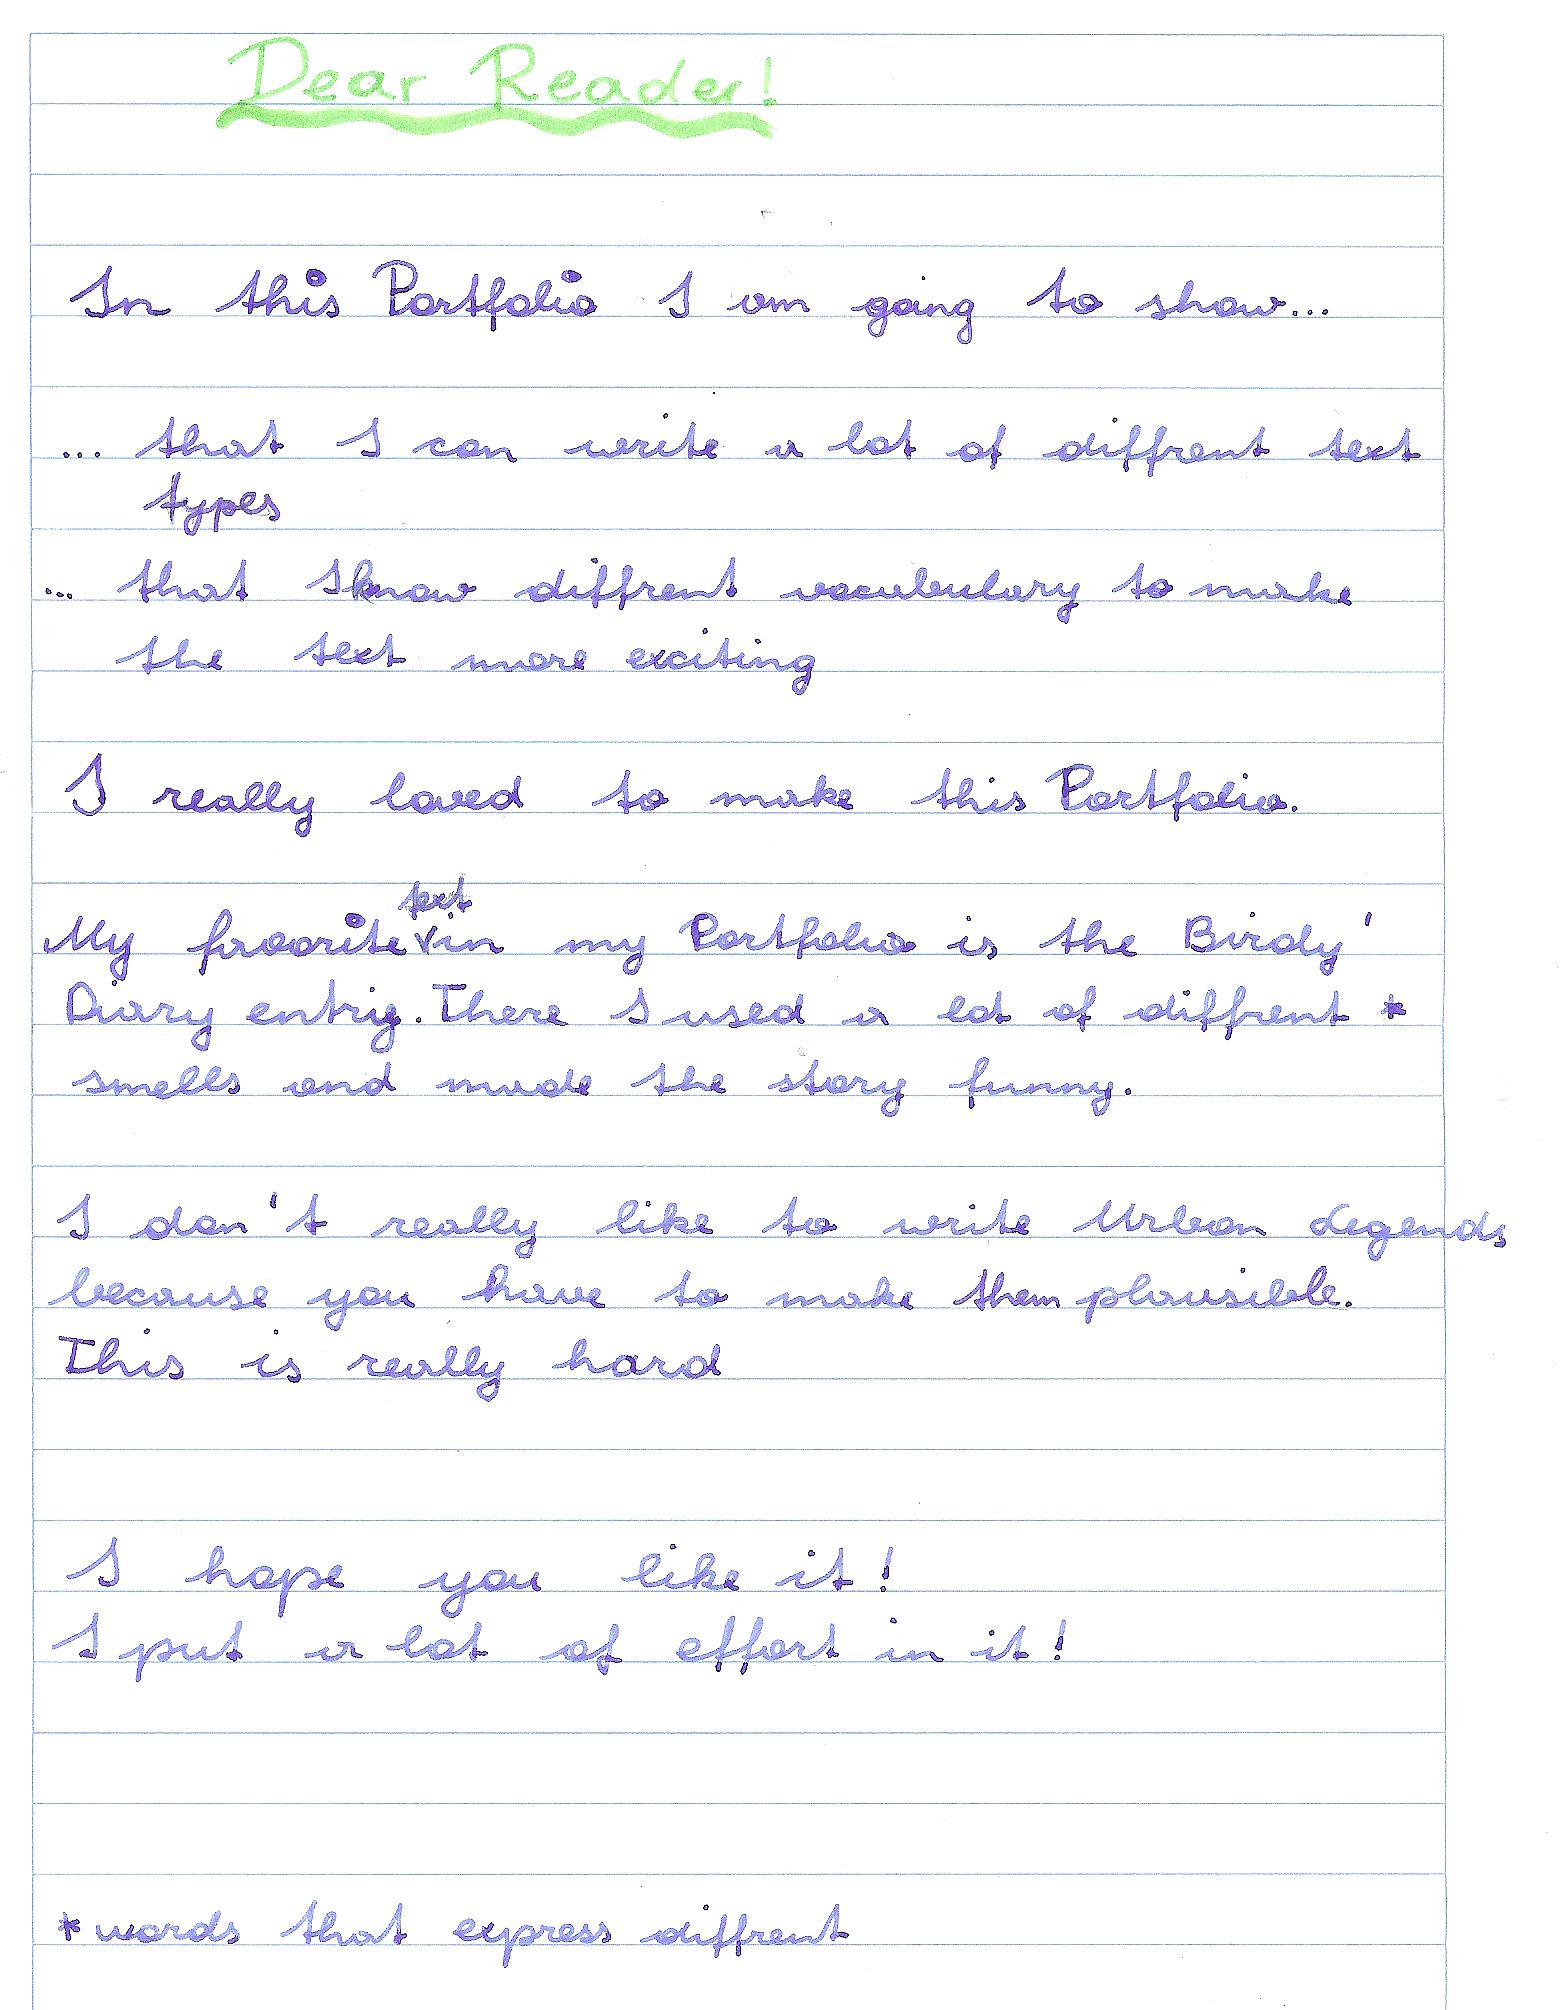 Dear Reader!
In this Portfolio I am going to show...
... that I can write a lot of diffrent text
types
... that I know diffrent vocabulary to make
the text more exciting
I really loved to make this Portfolio.
text
My favorite in my Portfolio is the Birdy'
Diary entrie. There I used a lot of diffrent *
smells and made the story funny.
I don't really like to write Urban Legends
because you have to make them plausible.
This is really hard
I hope you like it!
I put a lot of effort in it!
* words that express diffrent